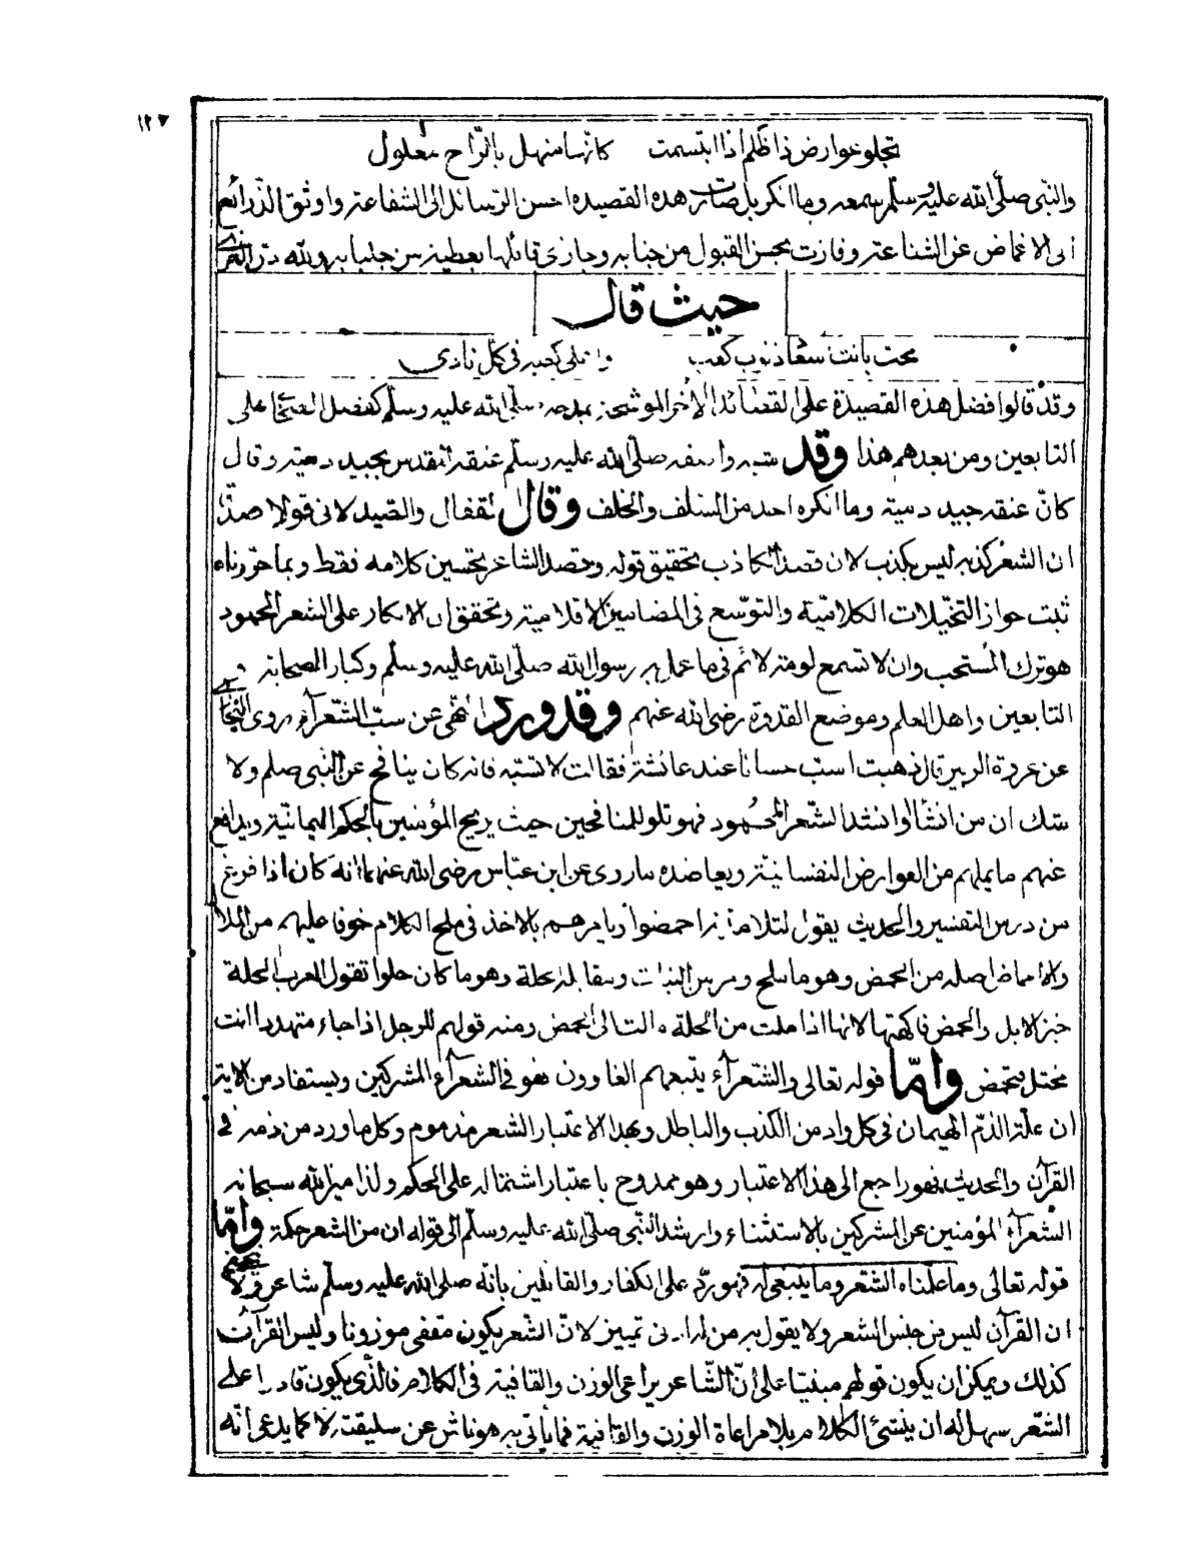 ١٢٧
تجلو عوارض ذا ظلم اذا ابتسمت كانها منهل بالراح معلول
والنبى صلى الله عليه وسلم يسمعه وما انكر بل صارت هذه القصيدة احسن الرسائل الى الشفاعة واوثق الذرائع
الى الاغماض عن الشناعة وفازت بحسن القبول من جنابه وجازى قائلها بعطية من جلبابه ولله در الغزى
حيث قال
محت بانت سعاد ذنوب كعب واعلى كعبه فى كل نادى
وقد قالوا فضل هذه القصيدة على القصائد الأخر الموشحة بمدحه صلى الله عليه وسلم كفضل الصحابة على
التابعين ومن بعدهم هذا وقد شبه واصفه صلى الله عليه وسلم عنقه المقدس بجيد دمية وقال
كانّ عنقه جيد دمية وما انكره احد من السلف والخلف وقال القفال والصيدلانى قولا صدقا
ان الشعر كذبه ليس بكذب لان قصد الكاذب تحقيق قوله وقصد الشاعر تحسين كلامه فقط وبما حررناه
ثبت جواز التخيلات الكلامية والتوسع فى المضامين الاقلامية وتحقق ان الانكار على الشعر المحمود
هو ترك المستحب وان لا تسمع لومة لائم فى ما عمل به رسول الله صلى الله عليه وسلم وكبار الصحابة و
التابعين واهل العلم وموضع القدوة رضى الله عنهم وقد ورد النهى عن سبّ الشعرآء روى البخارى
عن عروة الزبير قال ذهبت اسب حسانا عند عائشة فقالت لا تسبه فانه كان ينافح عن النبى صلعم ولا
شك ان من انشأ او انشد الشعر المحمود فهو تلو للمنافحين حيث يريح المؤمنين بالحكم اليمانية ويدافع
عنهم ما يملهم من العوارض النفسانية ويعاضده ما روى عن ابن عباس رضى الله عنهما انه كان اذا فرغ
من درس التفسير والحديث يقول لتلامذته احمضوا ويامرهم بالاخذ فى ملح الكلام خوفا عليهم من الملال
والاحماض اصله من الحمض وهو ما ملح ومر من النبات ومقابله حلة وهو ما كان حلوا تقول العرب الحلة
خبز الابل والحمض فاكهتها لانها اذا ملت من الحلة مالت الى الحمض ومنه قولهم للرجل اذا جاء متهددا انت
مختل فتحمض وامّا قوله تعالى والشعرآء يتبعهم الغاوون فهو فى الشعرآء المشركين ويستفاد من الاية
ان علة الذم الهيمان فى كل واد من الكذب والباطل وبهذا الاعتبار الشعر مذموم وكل ما ورد من ذمه فى
القرآن والحديث فهو راجع الى هذا الاعتبار وهو ممدوح باعتبار اشتماله على الحكم ولذا ميز الله سبحانه
الشعرآء المؤمنين عن المشركين بالاستثناء وارشد النبى صلى الله عليه وسلم الى قوله ان من الشعر حكمة وامّا
قوله تعالى وما علمناه الشعر وما ينبغى له فهو ردّ على الكفار والقائلين بانّه صلى الله عليه وسلم شاعر ولا
ان القرآن ليس من جنس الشعر ولا يقول به من له ادنى تمييز لانّ الشعر يكون مقفى موزونا وليس القرآن
كذلك ويمكن ان يكون قولهم مبنيّا على انّ الشّاعر يراعى الوزن والقافية فى الكلام فالذى يكون قادرا على
الشعر سهل له ان ينشئ الكلام بلا مراعاة الوزن والقافية فما يأتى به هو ناش عن سليقته لا كما يدعى انّه